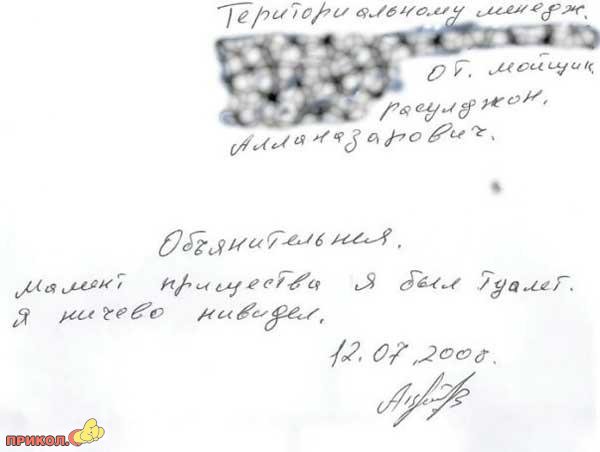 Териториальному менедж.
от. мойщик
расулджон.
Алланазарович.
Объянительная.
мамент прищества я был туалет.
я ничево нивидел.
12.07.2008.
ПРИКОЛ.